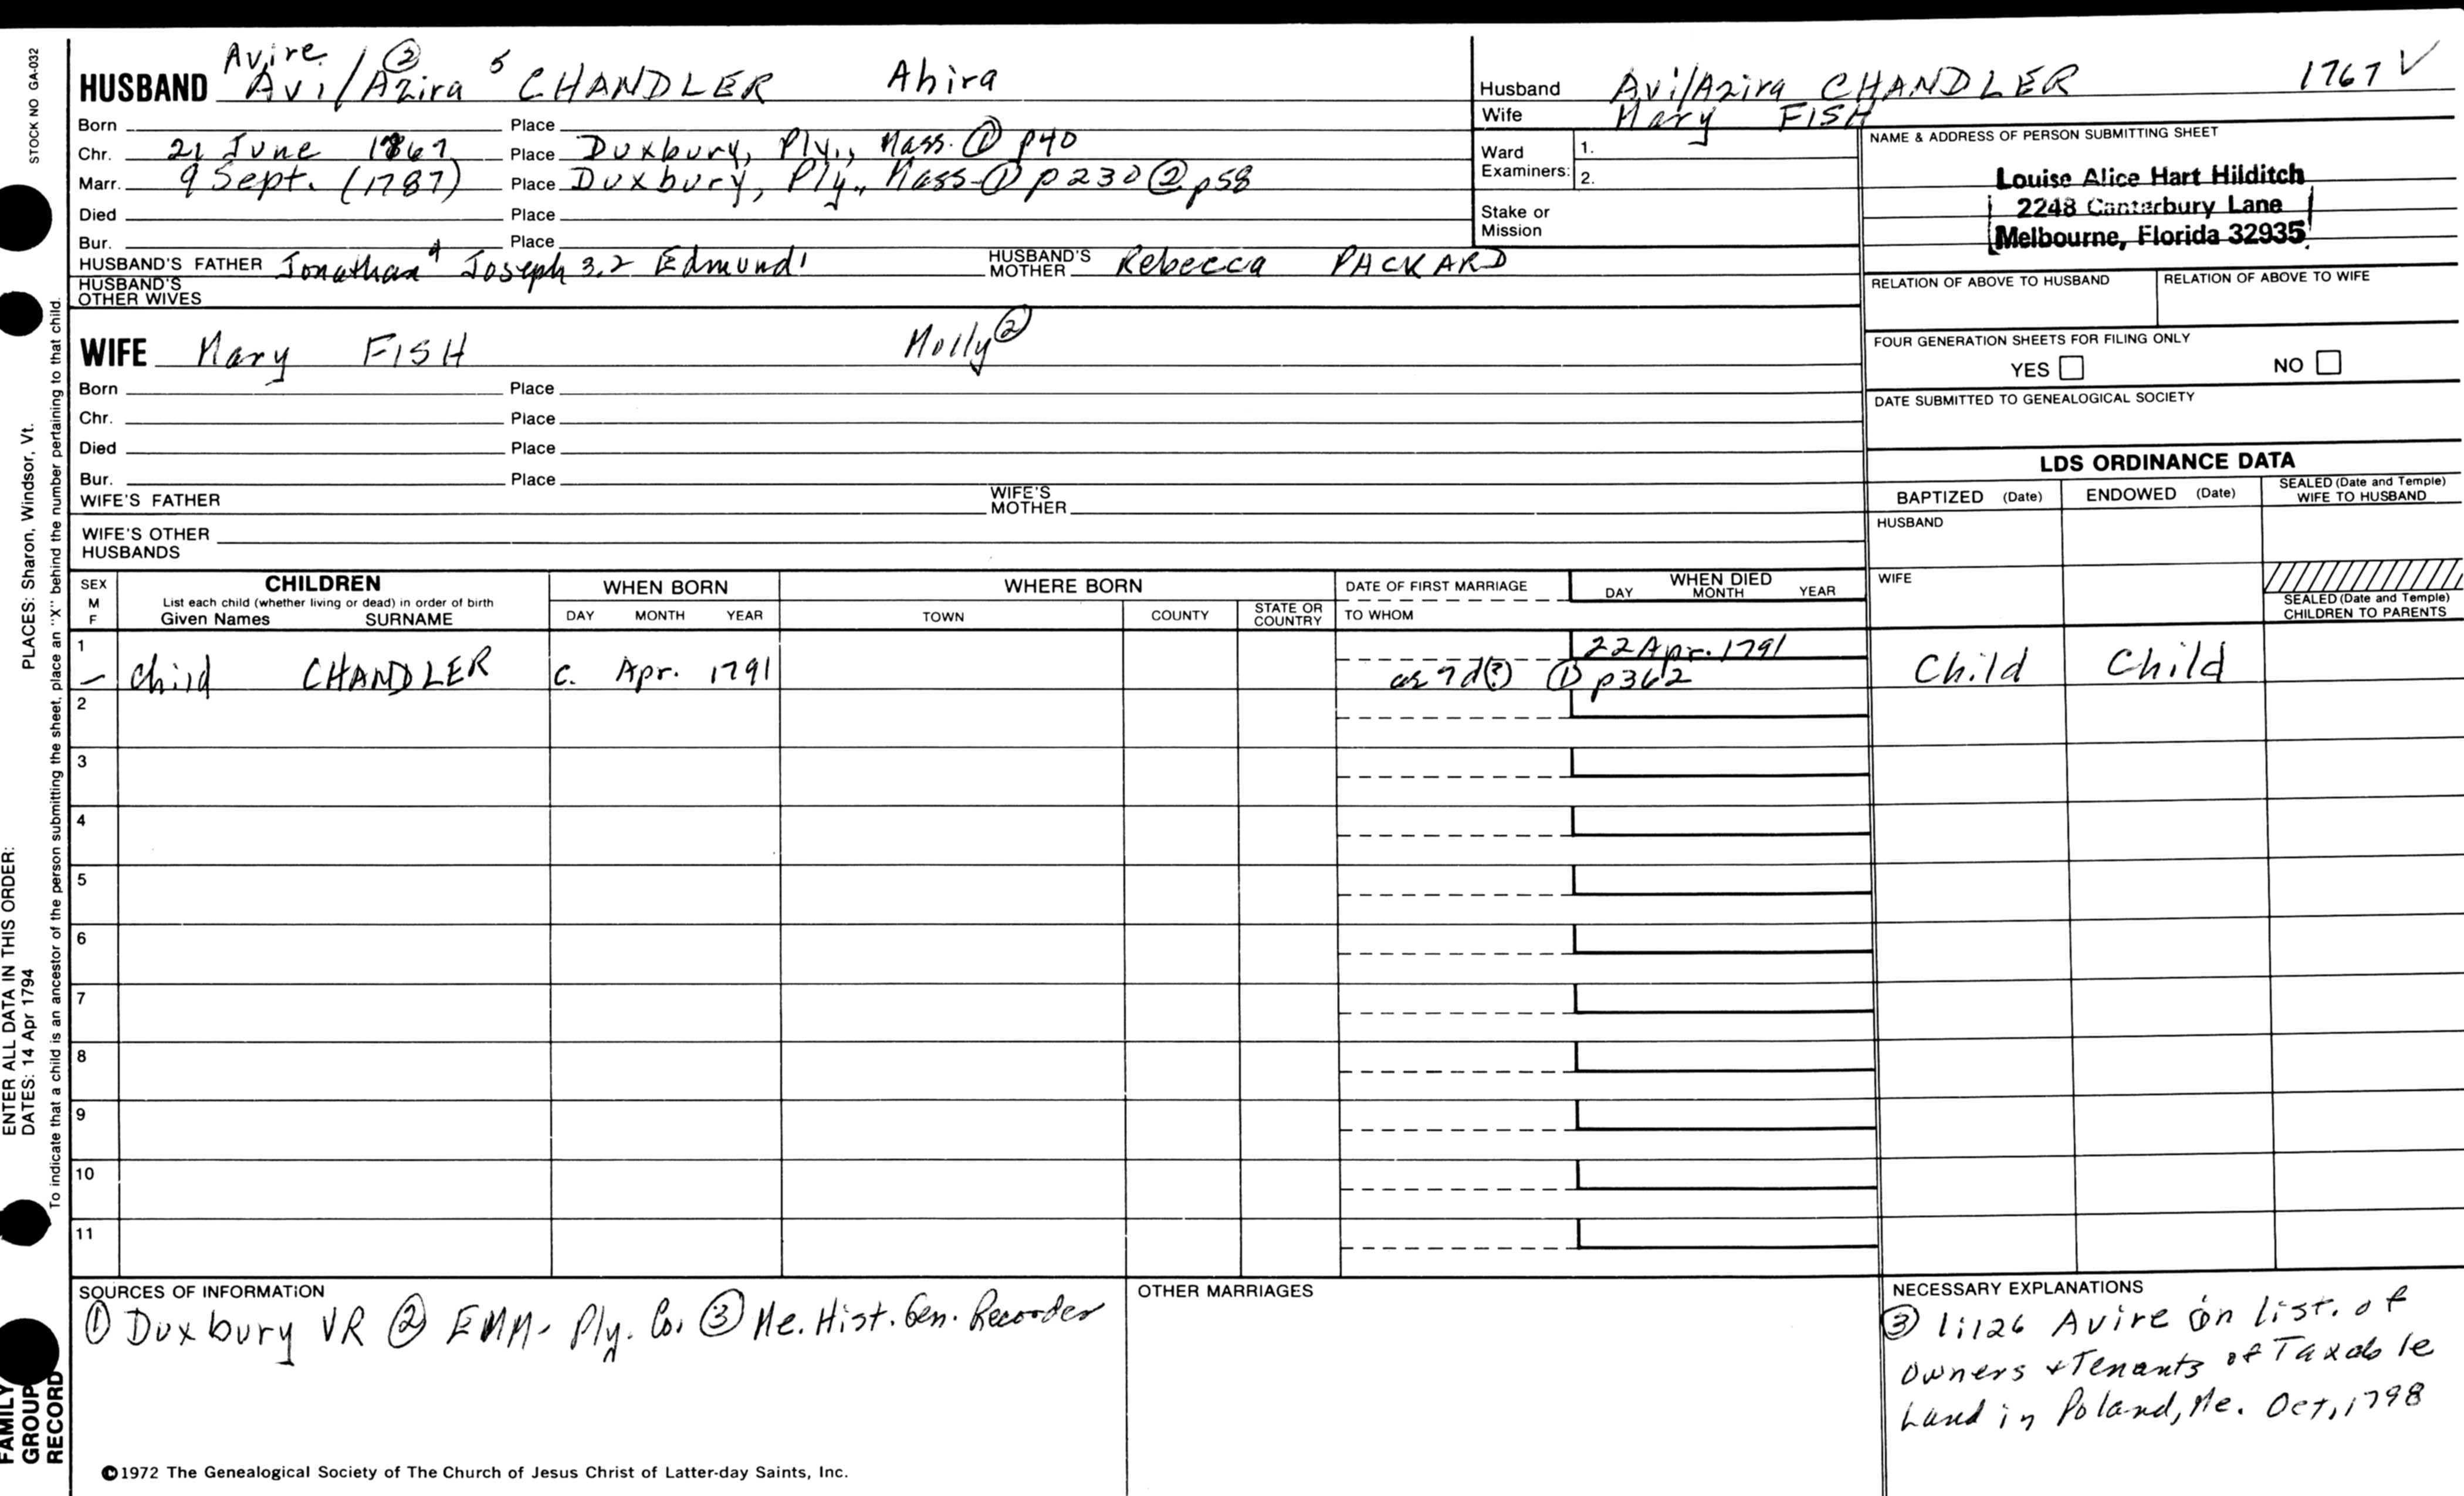 STOCK NO GA-032
Avire ②
HUSBAND Avi/Azira 5 CHANDLER Ahira
Born Place
Chr. 21 June 1767 Place Duxbury, Ply., Mass. ① p40
Marr. 9 Sept. (1787) Place Duxbury, Ply., Mass ① p230 ② p58
Died Place
Bur. Place
HUSBAND'S FATHER Jonathan 4 Joseph 3,2 Edmund 1 HUSBAND'S MOTHER Rebecca PACKARD
HUSBAND'S OTHER WIVES
WIFE Mary FISH Molly ②
Born Place
Chr. Place
Died Place
Bur. Place
WIFE'S FATHER WIFE'S MOTHER
WIFE'S OTHER HUSBANDS
Husband Avi/Azira CHANDLER 1767 V
Wife Mary FISH
Ward Examiners: 1.
2.
Stake or Mission
NAME & ADDRESS OF PERSON SUBMITTING SHEET
Louise Alice Hart Hilditch
2248 Canterbury Lane
Melbourne, Florida 32935
RELATION OF ABOVE TO HUSBAND RELATION OF ABOVE TO WIFE
FOUR GENERATION SHEETS FOR FILING ONLY
YES NO
DATE SUBMITTED TO GENEALOGICAL SOCIETY
LDS ORDINANCE DATA
BAPTIZED (Date) ENDOWED (Date) SEALED (Date and Temple) WIFE TO HUSBAND
HUSBAND
WIFE
SEALED (Date and Temple) CHILDREN TO PARENTS
SEX M F
CHILDREN
List each child (whether living or dead) in order of birth
Given Names SURNAME
WHEN BORN
DAY MONTH YEAR
WHERE BORN
TOWN COUNTY STATE OR COUNTRY
DATE OF FIRST MARRIAGE
TO WHOM
WHEN DIED
DAY MONTH YEAR
1 22 Apr. 1791
– Child CHANDLER c. Apr. 1791 as 7d(?) ① p362 Child Child
2
3
4
5
6
7
8
9
10
11
SOURCES OF INFORMATION
① Duxbury VR ② EMM- Ply. Co. ③ Me. Hist. Gen. Recorder
OTHER MARRIAGES
NECESSARY EXPLANATIONS
③ 1:126 Avire on list. of
Owners + Tenants of Taxable
Land in Poland, Me. Oct, 1798
©1972 The Genealogical Society of The Church of Jesus Christ of Latter-day Saints, Inc.
ENTER ALL DATA IN THIS ORDER:
DATES: 14 Apr 1794 PLACES: Sharon, Windsor, Vt.
To indicate that a child is an ancestor of the person submitting the sheet, place an "X" behind the number pertaining to that child.
FAMILY
GROUP
RECORD